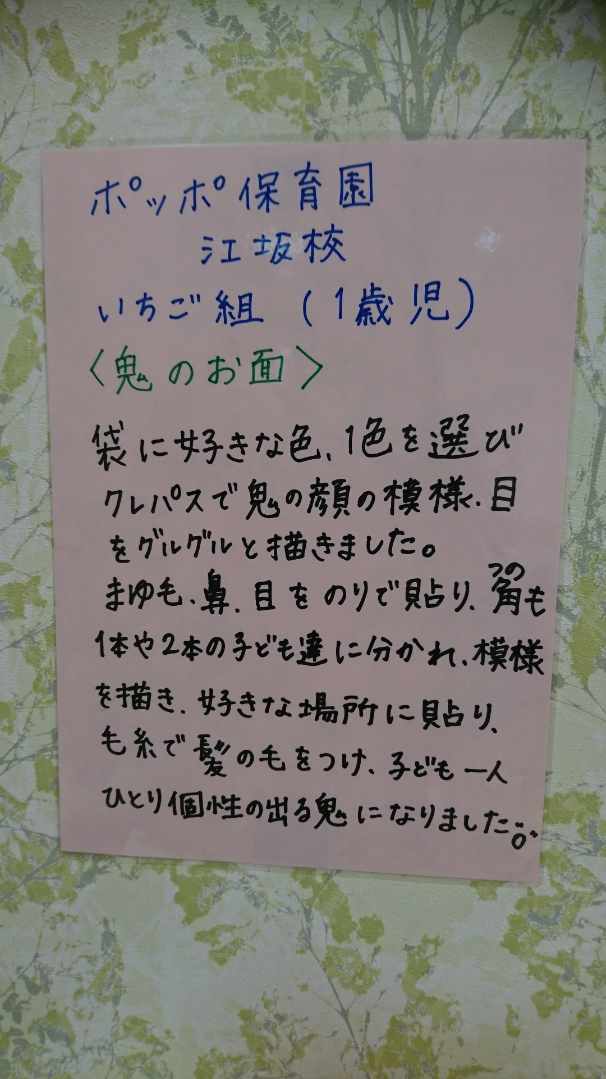 ポッポ保育園
江坂校
いちご組 (1歳児)
〈鬼のお面〉
袋に好きな色、1色を選び
クレパスで鬼の顔の模様、目
をグルグルと描きました。
まゆ毛、鼻、目をのりで貼り、角も
つの
1本や2本の子ども達に分かれ、模様
を描き、好きな場所に貼り、
毛糸で髪の毛をつけ、子ども一人
ひとり個性の出る鬼になりました